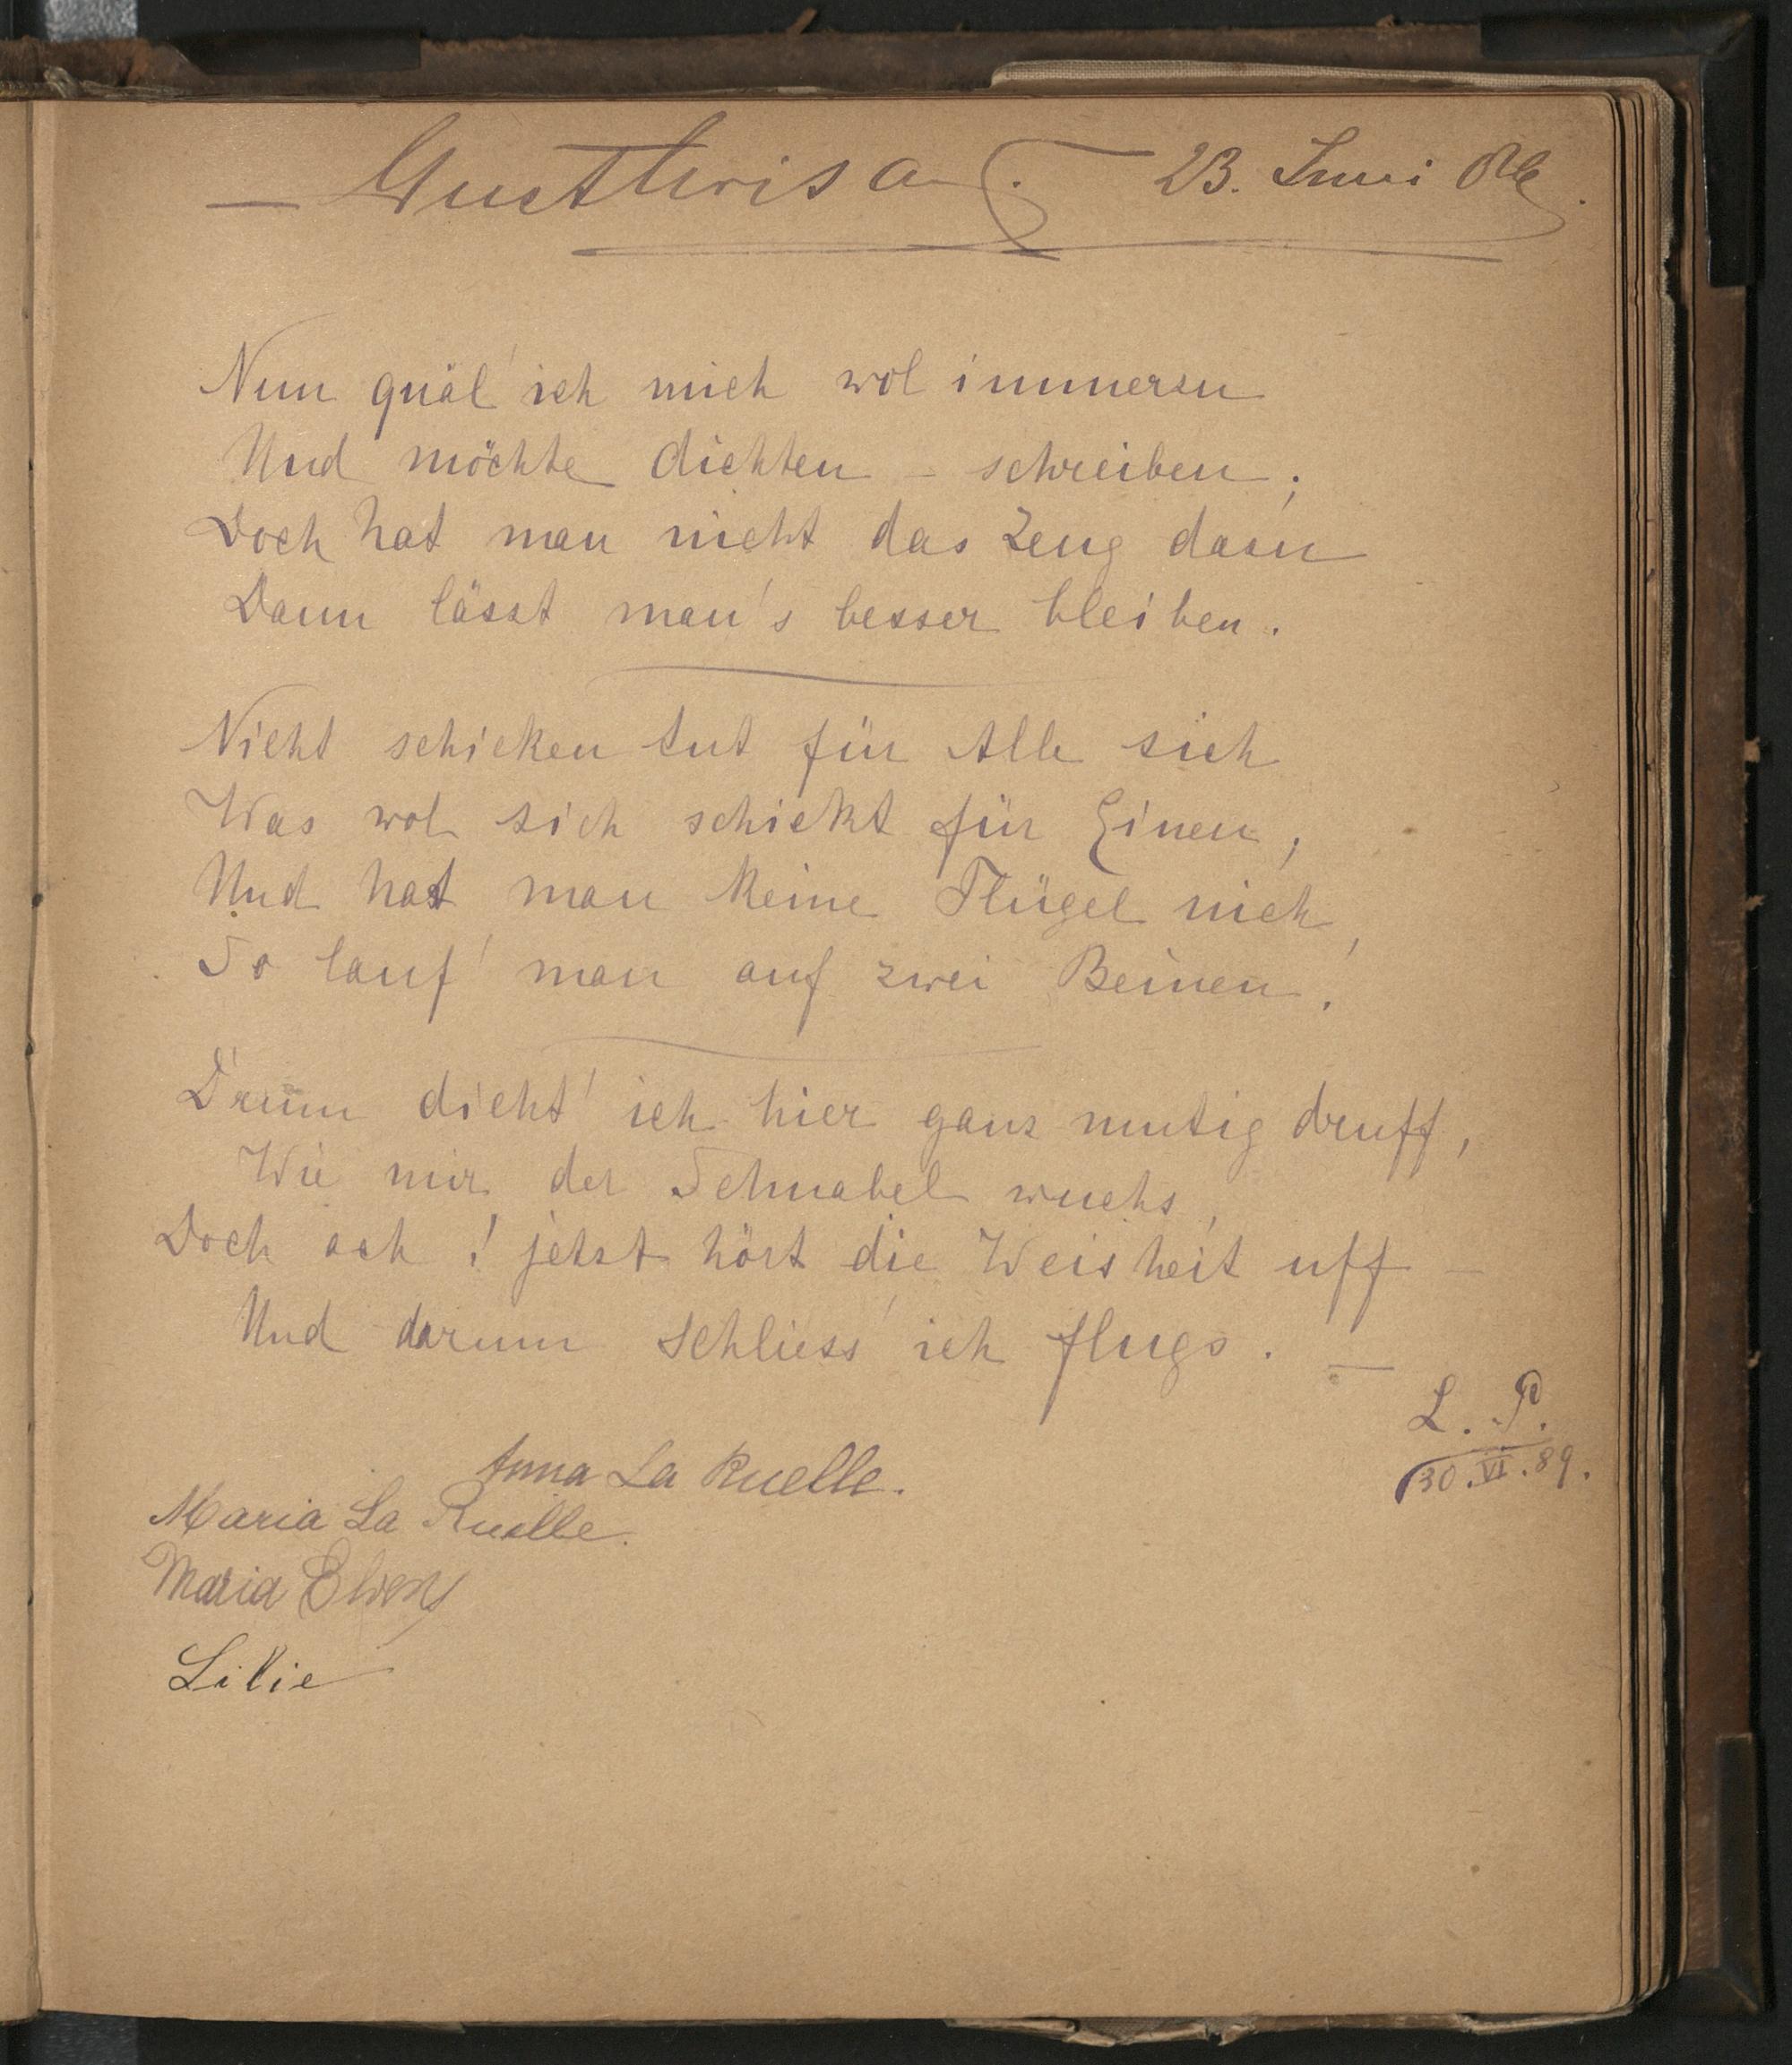 23. Juni
Nun quäl' ich mich wol immerzu
Und möchte dichten – schreiben;
Doch hat man nicht das Zeug dazu
Dann lässt man's besser bleiben.
Nicht schicken tut für Alle sich
Was wol sich schickt für Einen,
Und hat man keine Flügel nich,
So lauf' man auf zwei Beinen!
Drum dicht' ich hier ganz mutig druff,
Wie mir der Schnabel wuchs,
Doch ach! jetzt hört die Weisheit uff –
Und darum schliess' ich flugs. –
L. P.
30. VI. 89.
Anna La Ruelle.
Maria La Ruelle.
Maria
Lilie